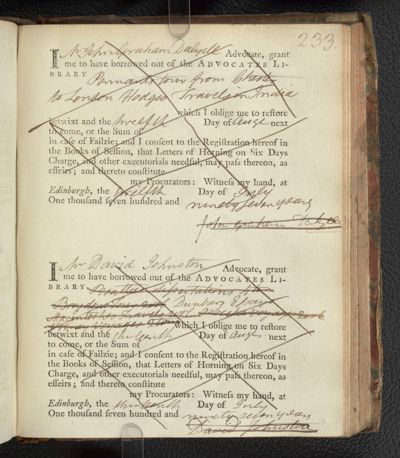 233.
I Mr John Graham Dalyell Advocate, grant
me to have borrowed out of the ADVOCATES LI-
BRARY Pennants tour from Chester
to London Hodges Travels in India
which I oblige me to restore
betwixt and the twelfth Day of Augt next
to come, or the Sum of
in case of Failzie; and I consent to the Registration hereof in
the Books of Session, that Letters of Horning on Six Days
Charge, and other executorials needful, may pass thereon, as
effeirs; and thereto constitute
my Procurators: Witness my hand, at
Edinburgh, the twelfth Day of July
One thousand seven hundred and ninety seven years
John Graham Dalyell
I Mr David Johnston Advocate, grant
me to have borrowed out of the ADVOCATES LI-
BRARY
Dunbars
which I oblige me to restore
betwixt and the thirteenth Day of Augt next
to come, or the Sum of
in case of Failzie; and I consent to the Registration hereof in
the Books of Session, that Letters of Horning on Six Days
Charge, and other executorials needful, may pass thereon, as
effeirs; and thereto constitute
my Procurators: Witness my hand, at
Edinburgh, the thirteenth Day of July
One thousand seven hundred and ninety seven years
David Johnston